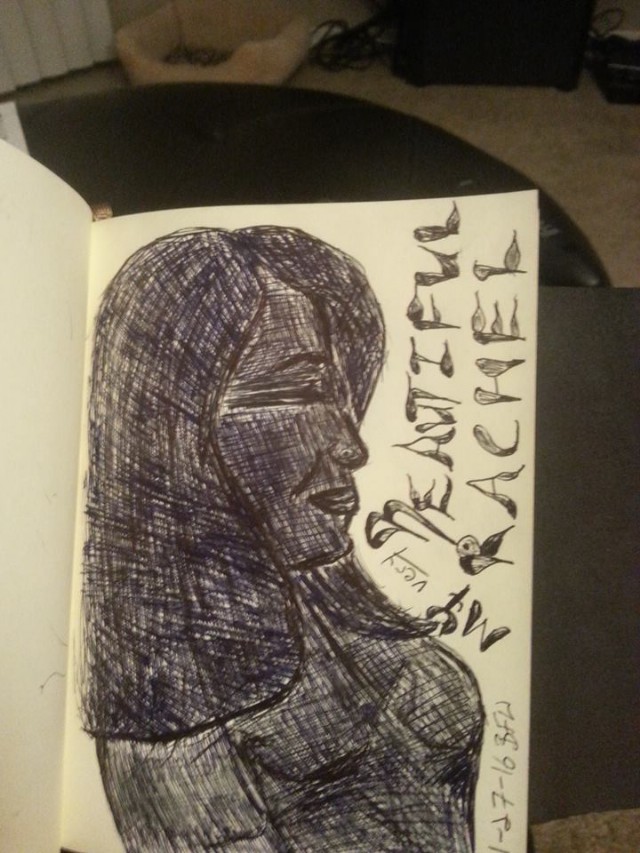 MY
BEAUTIFUL
RACHEL
1-27-16 BFW